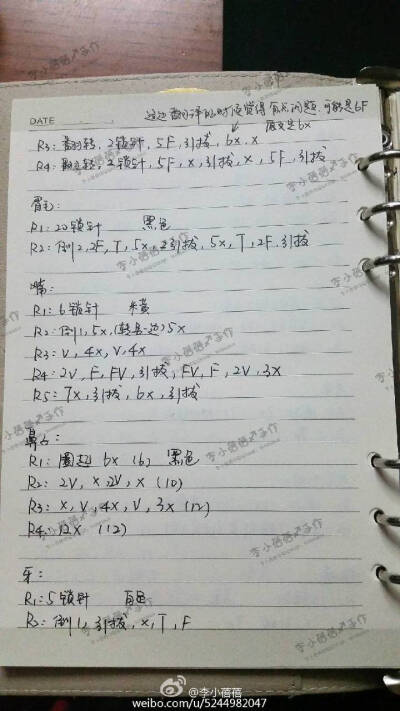 这边翻译的时候觉得有点问题.可能是6F
原文是6x
DATE
R3: 翻转, 2锁针, 5F, 引拔, 6x, x
R4: 翻转, 2锁针, 5F, x, 引拔, x, 5F, 引拔
眉毛:
R1: 20锁针 黑色
R2: 倒2, 2F, T, 5x, 2引拔, 5x, T, 2F, 引拔
嘴:
R1: 6锁针 米黄
R2: 倒1, 5x, (转另一边) 5x
R3: V, 4x, V, 4x
R4: 2V, F, FV, 引拔, FV, F, 2V, 3x
R5: 7x, 引拔, 6x, 引拔
鼻子:
R1: 圈起 6x (6) 黑色
R2: 2V, x, 2V, x (10)
R3: x, V, 4x, V, 3x (12)
R4: 12x (12)
牙:
R1: 5锁针 白色
R2: 倒1, 引拔, x, T, F
李小蓓蓓手作
@李小蓓蓓
weibo.com/u/5244982047